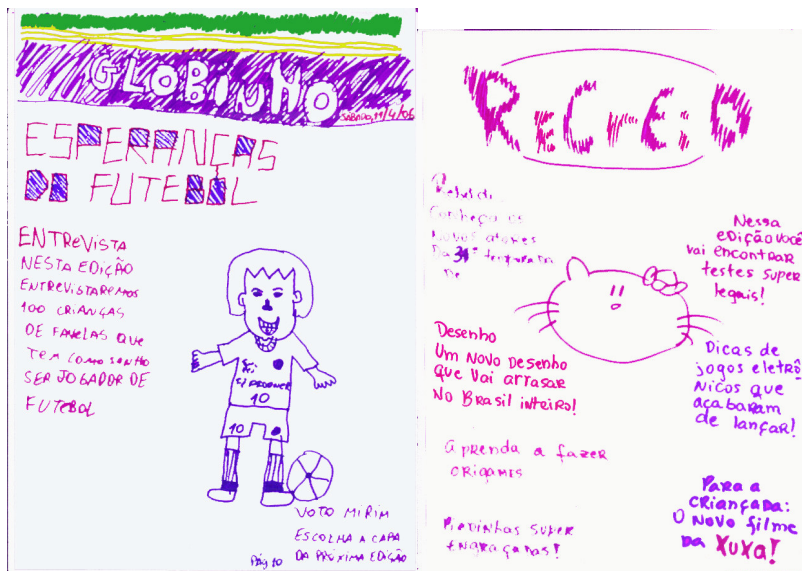 GLOBINHO
SÁBADO, 11/4/06
ESPERANÇAS
DO FUTEBOL
ENTREVISTA
NESTA EDIÇÃO
ENTREVISTAREMOS
100 CRIANÇAS
DE FAVELAS QUE
TEM COMO SONHO
SER JOGADOR DE
FUTEBOL
10
10
VOTO MIRIM
ESCOLHA A CAPA
DA PRÓXIMA EDIÇÃO
Pág 10
ReCrEiO
Conheça os
novos atores
da 3ª temporada
de
Nessa
edição você
vai encontrar
testes super
legais!
Desenho
Um novo desenho
que vai arrasar
no Brasil inteiro!
Dicas de
jogos eletrô
nicos que
acabaram
de lançar!
Aprenda a fazer
origamis
Piadinhas super
engraçadas!
Para a
criançada:
O novo filme
da Xuxa!